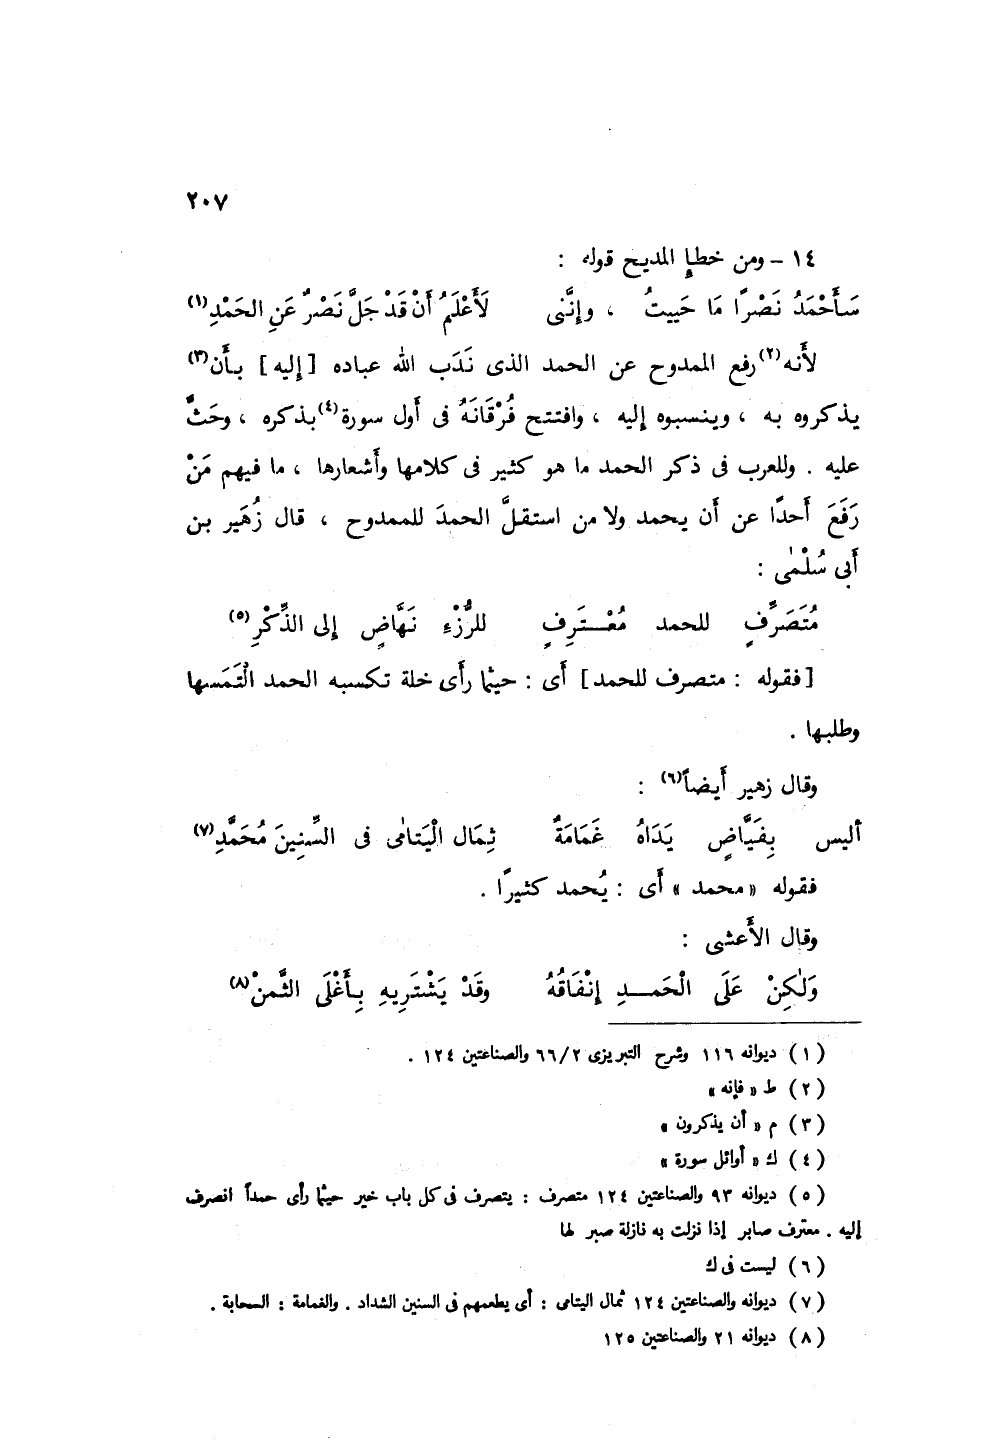 ٢٠٧
١٤ - ومن خطإ المديح قوله :
سَأَحْمَدُ نَصْرًا مَا حَييتُ ، وإنَّنى لَأَعْلَمُ أَنْ قَدْ جَلَّ نَصْرٌ عَنِ الحَمْدِ(١)
لأَنه(٢) رفع الممدوح عن الحمد الذى نَدَب الله عباده [ إليه ] بأَن(٣)
يذكروه به ، وينسبوه إليه ، وافتتح فُرْقَانَهُ فى أَول سورة(٤) بذكره ، وحَثَّ
عليه . وللعرب فى ذكر الحمد ما هو كثير فى كلامها وأَشعارها ، ما فيهم مَنْ
رَفَعَ أَحدًا عن أَن يحمد ولا من استقلَّ الحمدَ للممدوح ، قال زُهَير بن
أَبى سُلْمٰى :
مُتَصَرِّفٍ للحمد مُعْـتَرِفٍ للرُّزْءِ نَهَّاضٍ إلى الذِّكْرِ(٥)
[ فقوله : متصرف للحمد ] أَى : حيثما رأَى خلة تكسبه الحمد الْتَمَسها
وطلبها .
وقال زهير أَيضاً(٦) :
أليس بِفَيَّاضٍ يَدَاهُ غَمَامَةٌ ثِمَال الْيَتامٰى فى السِّنِينَ مُحَمَّدِ(٧)
فقوله « محمد » أَى : يُحمد كثيرًا .
وقال الأَعشى :
وَلٰكِنْ عَلَى الْحَمـدِ إِنْفَاقُهُ وقَدْ يَشْتَرِيهِ بِأَغْلَى الثَّمنْ(٨)
(١) ديوانه ١١٦ وشرح التبريزى ٦٦/٢ والصناعتين ١٢٤ .
(٢) ط « فإنه »
(٣) م « أن يذكرون »
(٤) ك « أوائل سورة »
(٥) ديوانه ٩٣ والصناعتين ١٢٤ متصرف : يتصرف فى كل باب خير حيثما رأى حمداً انصرف
إليه . معترف صابر إذا نزلت به نازلة صبر لها
(٦) ليست فى ك
(٧) ديوانه والصناعتين ١٢٤ ثمال اليتامى : أى يطعمهم فى السنين الشداد . والغمامة : السحابة .
(٨) ديوانه ٢١ والصناعتين ١٢٥